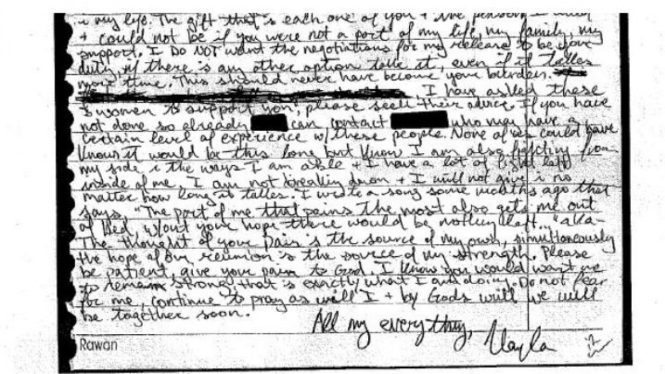 in my life. The gift that is each one of you + the person I
+ could not be if you were not a part of my life, my family, my
support. I DO NOT want the negotiations for my release to be your
duty, if there is any other option take it, even if it takes
more time. This should never have become your burden.
I have asked these
women to support you; please seek their advice. If you have
not done so already can contact who may have a
certain level of experience w/ these people. None of us could have
known it would be this long but know I am also fighting from
my side in the ways I am able + I have a lot of fight left
inside of me. I am not breaking down + I will not give in no
matter how long it takes. I wrote a song some months ago that
says, "The part of me that pains the most also gets me out
of bed, w/out your hope there would be nothing left..." aka-
The thought of your pain is the source of my own, simultaneously
the hope of our reunion is the source of my strength. Please
be patient, give your pain to God. I know you would want me
to remain strong. that is exactly what I am doing. Do not fear
for me, continue to pray as will I + by Gods will we will
be together soon.
All my everything,
Kayla
Rawan